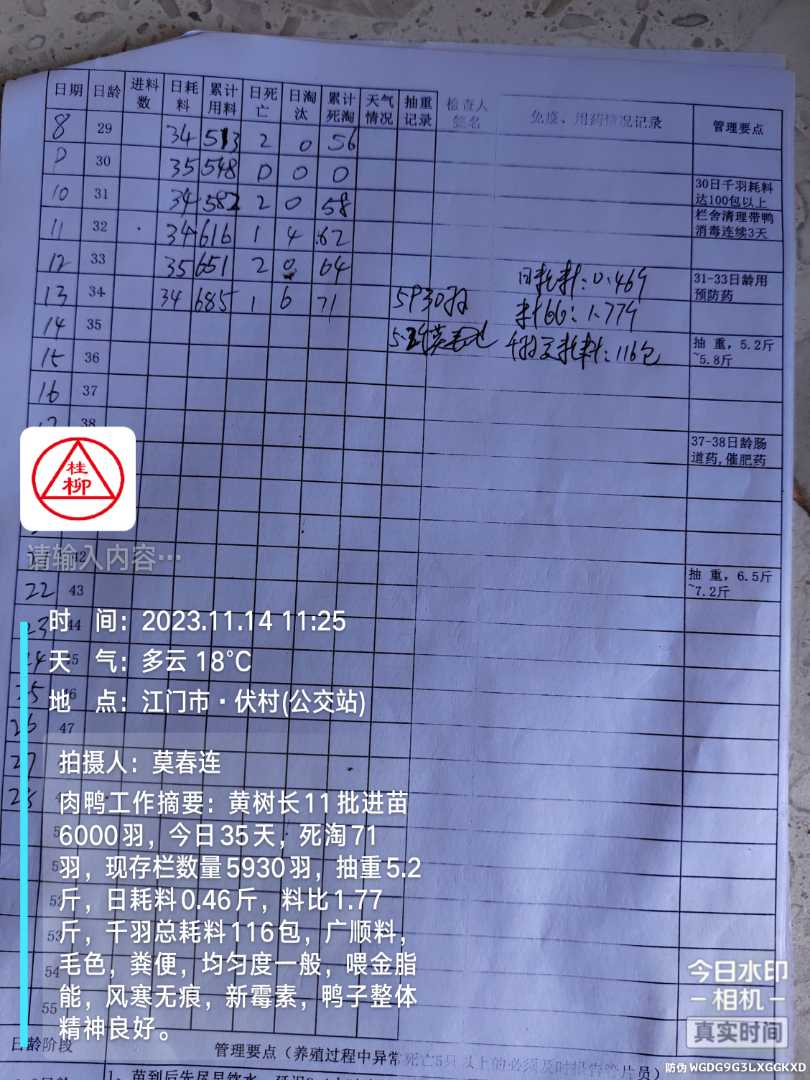 日期 日龄 进料数 日耗料 累计用料 日死亡 日淘汰 累计死淘 天气情况 抽重记录 检查人签名 免疫、用药情况记录 管理要点
8 29 34 513 2 0 56
30 35 548 0 0 0 30日千羽耗料达100包以上
10 31 34 582 2 0 58 栏舍清理带鸭消毒连续3天
11 32 34 616 1 4 62
12 33 35 651 2 0 64 日耗料:0.469 31-33日龄用预防药
13 34 34 685 1 6 71 5930羽
14 35 抽重,5.2斤~5.8斤
15 36 116包
16 37
38 37-38日龄肠道药,催肥药
桂柳
请输入内容…
42
22 43 抽重,6.5斤~7.2斤
23 44
时 间:2023.11.14 11:25
24 5
天 气:多云 18°C
25 6
地 点:江门市·伏村(公交站)
26 47
27
拍摄人:莫春连
28
肉鸭工作摘要:黄树长11批进苗
6000羽,今日35天,死淘71
羽,现存栏数量5930羽,抽重5.2
斤,日耗料0.46斤,料比1.77
斤,千羽总耗料116包,广顺料,
毛色,粪便,均匀度一般,喂金脂
能,风寒无痕,新霉素,鸭子整体
精神良好。
54
55
今日水印
相机
真实时间
日龄阶段 管理要点(养殖过程中异常死亡5只以上的必须及时报告管片员)
防伪 WGDG9G3LXGGKXD